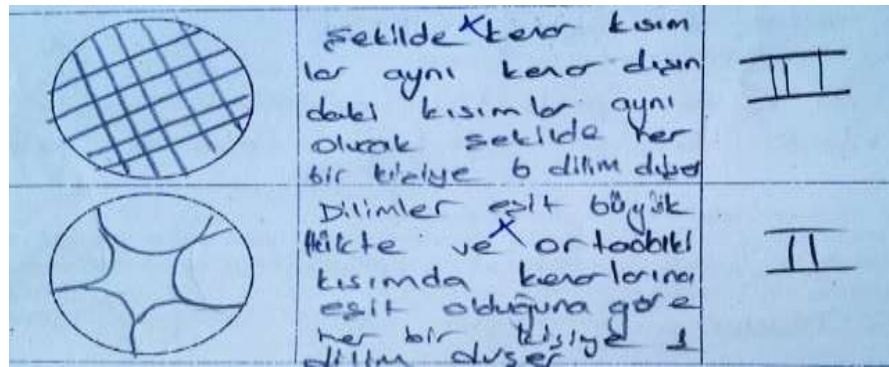 Şekilde kenar kısım
lar aynı kenar dışın
daki kısımlar aynı
olucak şekilde her
bir kişiye 6 dilim düşer
III
Dilimler eşit büyük
lükte ve ortadaki
kısımda kenarlarına
eşit olduğuna göre
her bir kişiye 1
dilim düşer
II